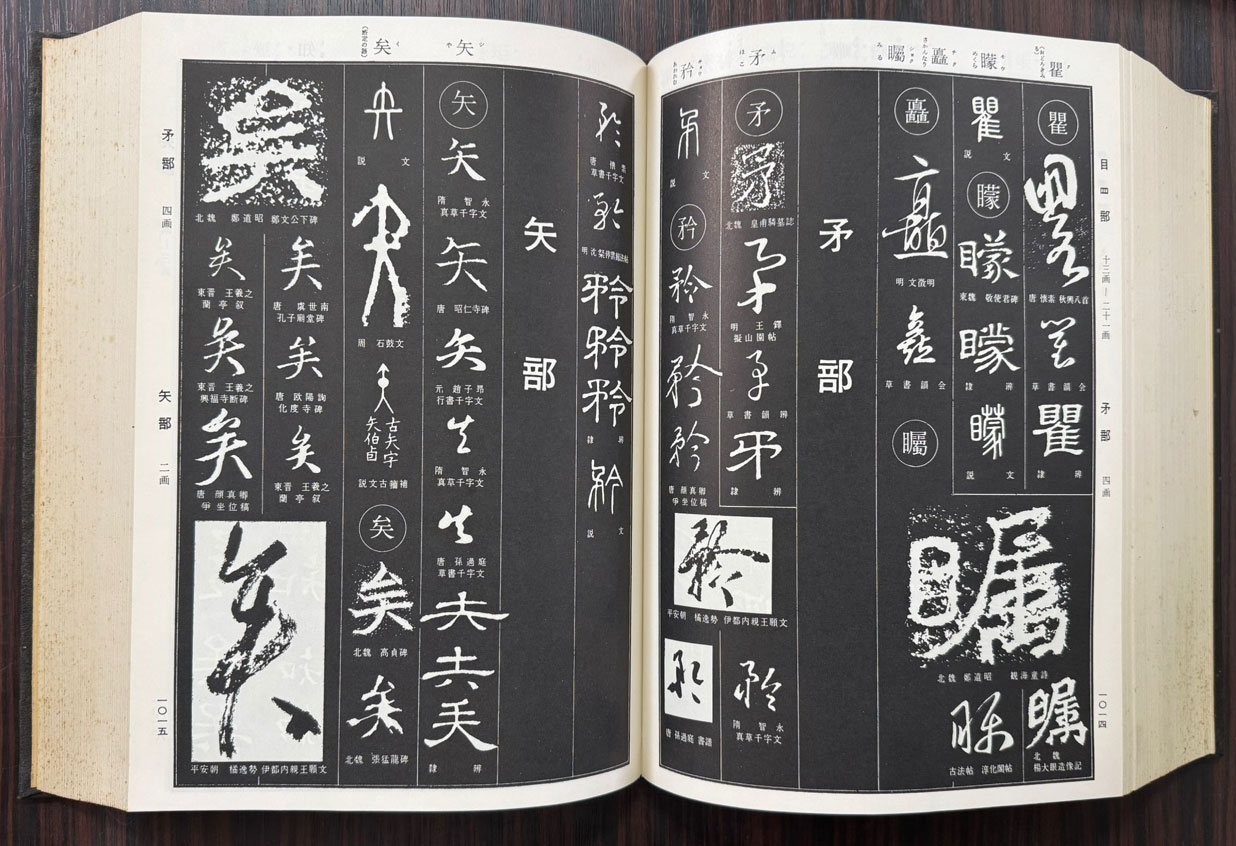 瞿
矇
矗
矚
矛
矜
目部
十三画—二十一画
矛部
四画
一〇一四
瞿
唐 懐素 秋興八首
草書韻会
隷辨
瞿
説文
矇
東魏 敬使君碑
隷辨
説文
北魏 鄭道昭 観海童詩
北魏
楊大眼造像記
古法帖 淳化閣帖
矗
明 文徴明
草書韻会
矚
矛部
矛
北魏 皇甫驎墓誌
明 王鐸
擬山園帖
草書韻辨
隷辨
説文
矜
隋 智永
真草千字文
唐 顔真卿
争坐位稿
平安朝 橘逸勢 伊都内親王願文
隋 智永
真草千字文
唐 孫過庭 書譜
草書千字文
隷辨
説文
矢部
矢
シ
や
矣
イ
矛部
四画
矢部
二画
一〇一五
矢
隋 智永
真草千字文
唐 昭仁寺碑
元 趙子昂
行書千字文
隋 智永
真草千字文
唐 孫過庭
草書千字文
隷辨
説文
周 石鼓文
古矢字
矢伯卣
説文古籀補
矣
北魏 高貞碑
北魏 張猛龍碑
北魏 鄭道昭 鄭文公下碑
唐 虞世南
孔子廟堂碑
唐 欧陽詢
化度寺碑
東晋 王羲之
蘭亭叙
東晋 王羲之
蘭亭叙
東晋 王羲之
興福寺断碑
唐 顔真卿
争坐位稿
平安朝 橘逸勢 伊都内親王願文